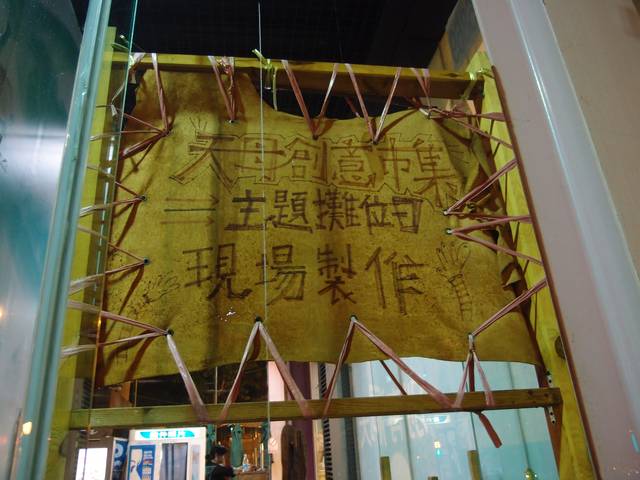 天母創意市集
二主題攤位
現場製作
P